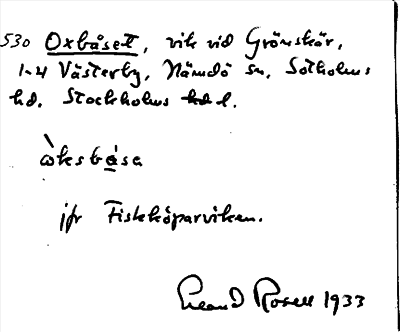 530 Oxbåset, vik vid Grönskär,
1-4 Västerby, Nämdö sn, Sotholms
hd. Stockholms l.
ò̀ksbåsa
jfr Fiskköparviken.
Erland Rosell 1933